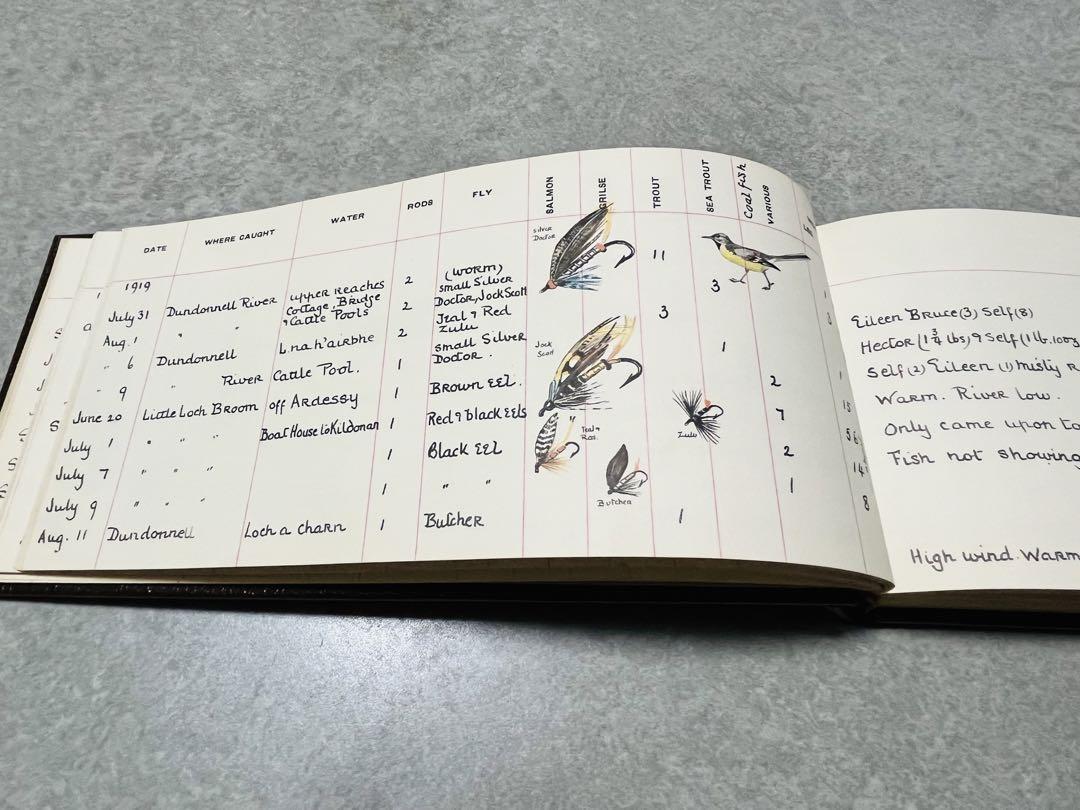 DATE WHERE CAUGHT WATER RODS FLY SALMON GRILSE TROUT SEA TROUT Coal fish VARIOUS
1919
July 31 Dundonnell River upper reaches 2 (worm) 11
Aug. 1 " " Cottage, Bridge & Cattle Pools 2 small Silver Doctor, Jock Scott 3
" 6 Dundonnell L. na h'airbhe 2 Teal & Red Zulu 3
" 9 " River Cattle Pool. 1 small Silver Doctor. 1
June 20 Little Loch Broom off Ardessy 1 Brown Eel. 2
July 1 " " " Boat House to Kildonan 1 Red & black Eels 7
July 7 " " " 1 Black Eel 2
July 9 " " " 1 " " 1
Aug. 11 Dundonnell Loch a charn 1 Butcher 1
Silver Doctor
Jock Scott
Teal & Red.
Zulu
Butcher
15
14
8
Eileen Bruce (3) Self (8)
Hector (1¾ lbs) & Self (1 lb.
Self (2) Eileen (1) misty
Warm. River low.
Only came upon
Fish not showing
High wind. Warm